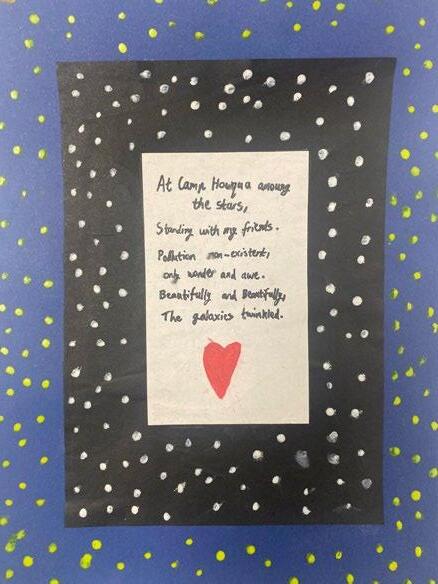 At Camp Howqua among
the stars,
Standing with my friends.
Pollution non-existent,
only wonder and awe.
Beautifully and Beautifully,
The galaxies twinkled.